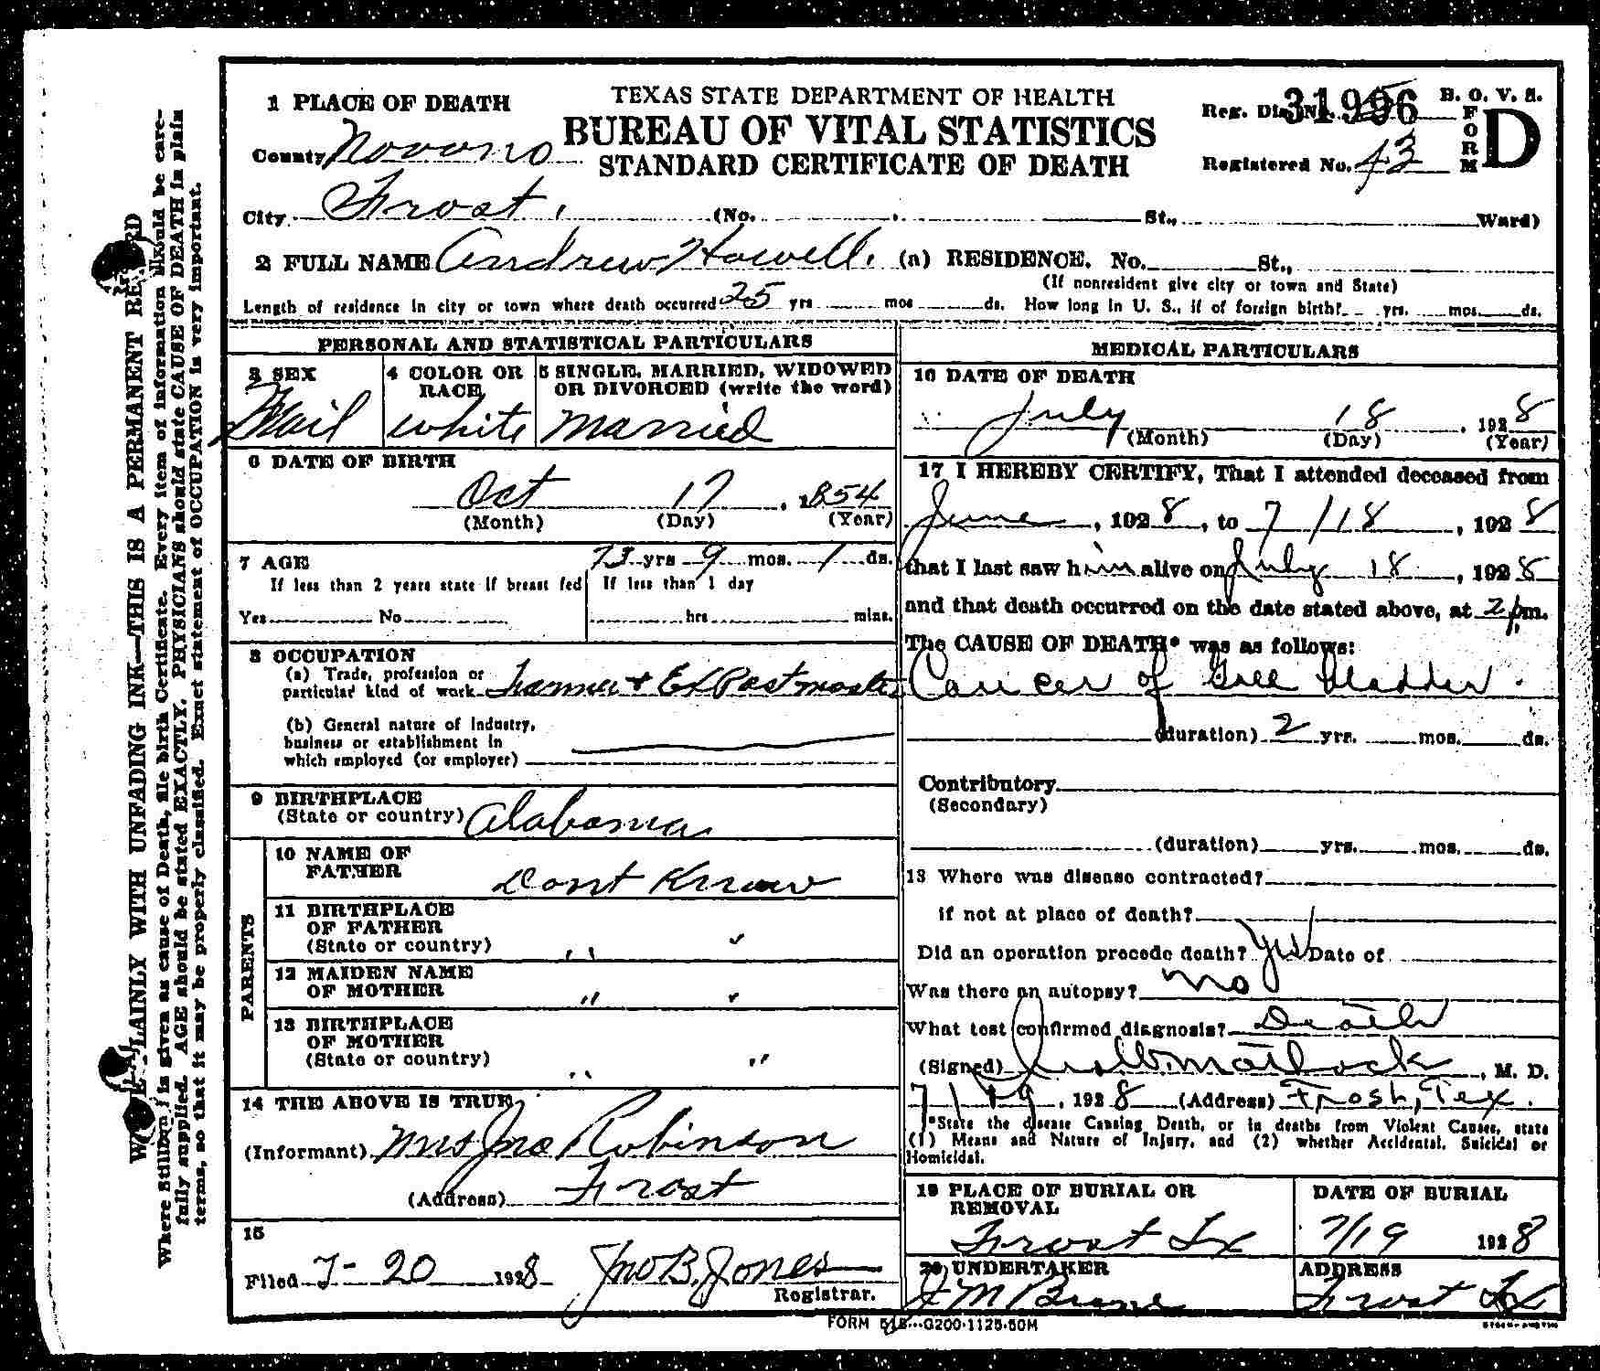 TEXAS STATE DEPARTMENT OF HEALTH
BUREAU OF VITAL STATISTICS
STANDARD CERTIFICATE OF DEATH
Reg. Dis. No. 31996
B. O. V. S.
FORM D
Registered No. 43
1 PLACE OF DEATH
County Navarro
City Frost, (No. , St., Ward)
2 FULL NAME Andrew Howell. (a) RESIDENCE. No. St.,
(If nonresident give city or town and State)
Length of residence in city or town where death occurred 25 yrs mos ds. How long in U. S., if of foreign birth? yrs. mos. ds.
PERSONAL AND STATISTICAL PARTICULARS
3 SEX
Mail
4 COLOR OR RACE
white
5 SINGLE, MARRIED, WIDOWED
OR DIVORCED (write the word)
Married
6 DATE OF BIRTH
Oct 17, 1854
(Month) (Day) (Year)
7 AGE 73 yrs 9 mos. 1 ds.
If less than 2 years state if breast fed
Yes No
If less than 1 day
hrs mins.
8 OCCUPATION
(a) Trade, profession or
particular kind of work Farmer + Ex Postmaster
(b) General nature of Industry,
business or establishment in
which employed (or employer)
9 BIRTHPLACE
(State or country) Alabama
PARENTS
10 NAME OF
FATHER Dont Know
11 BIRTHPLACE
OF FATHER
(State or country) " "
12 MAIDEN NAME
OF MOTHER " "
13 BIRTHPLACE
OF MOTHER
(State or country) " "
14 THE ABOVE IS TRUE
(Informant) Mrs Jno Robinson
(Address) Frost
15
Filed 7-20 1928 Jno B. Jones
Registrar.
MEDICAL PARTICULARS
16 DATE OF DEATH
July 18, 1928
(Month) (Day) (Year)
17 I HEREBY CERTIFY, That I attended deceased from
June, 1928, to 7/18, 1928
that I last saw him alive on July 18, 1928
and that death occurred on the date stated above, at 2 pm.
The CAUSE OF DEATH* was as follows:
Cancer of Gall bladder.
(duration) 2 yrs. mos. ds.
Contributory
(Secondary)
(duration) yrs. mos. ds.
18 Where was disease contracted?
if not at place of death?
Did an operation precede death? Yes Date of
Was there an autopsy? No
What test confirmed diagnosis? Death
(Signed) Matlock, M. D.
7/19, 1928 (Address) Frost, Tex.
*State the disease Causing Death, or in deaths from Violent Causes, state
(1) Means and Nature of Injury, and (2) whether Accidental, Suicidal or
Homicidal.
19 PLACE OF BURIAL OR
REMOVAL
Frost Tx
DATE OF BURIAL
7/19 1928
20 UNDERTAKER
J M
ADDRESS
Frost Tx
FORM G200-1125-50M
WRITE PLAINLY WITH UNFADING INK—THIS IS A PERMANENT RECORD
Where Stillborn is given as cause of Death, file birth Certificate. Every item of information should be care-
fully supplied. AGE should be stated EXACTLY. PHYSICIANS should state CAUSE OF DEATH in plain
terms, so that it may be properly classified. Exact statement of OCCUPATION is very important.